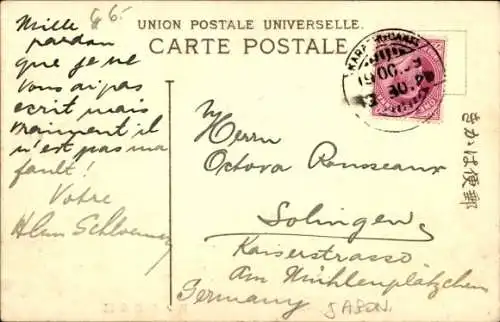 66.
UNION POSTALE UNIVERSELLE.
CARTE POSTALE
Mille
pardon
que je ne
vous ai pas
ecrit mais
vraiment il
n'est pas ma
fault!
Votre
Herrn
Octova Rousseaux
Solingen
Kaiserstrasse
Am Mühlenplätzchen
Germany
JAPON.
きかは便郵